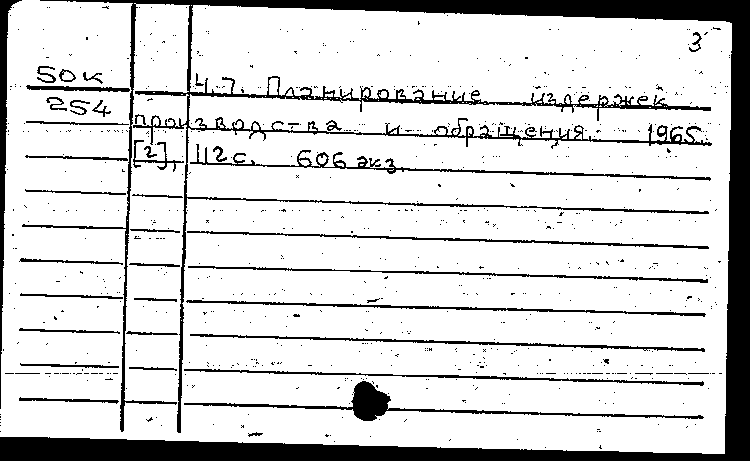 3
50к
254
Ч.7. Планирование издержек
производства и обращения. 1965.
[2], 112 с. 606 экз.